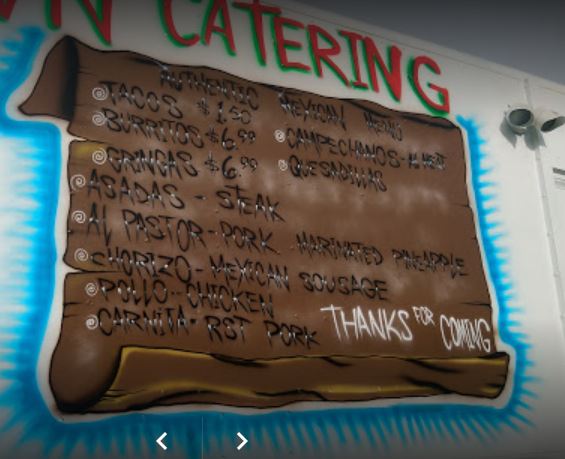 CATERING
AUTHENTIC MEXICAN MENU
TACOS $1.50
BURRITOS $6.99 CAMPECHANOS - ALL MEAT
GRINGAS $6.99 QUESADILLAS
ASADAS - STEAK
AL PASTOR - PORK MARINATED PINEAPPLE
CHORIZO - MEXICAN SOUSAGE
POLLO - CHICKEN
CARNITA - RST PORK
THANKS FOR COMING